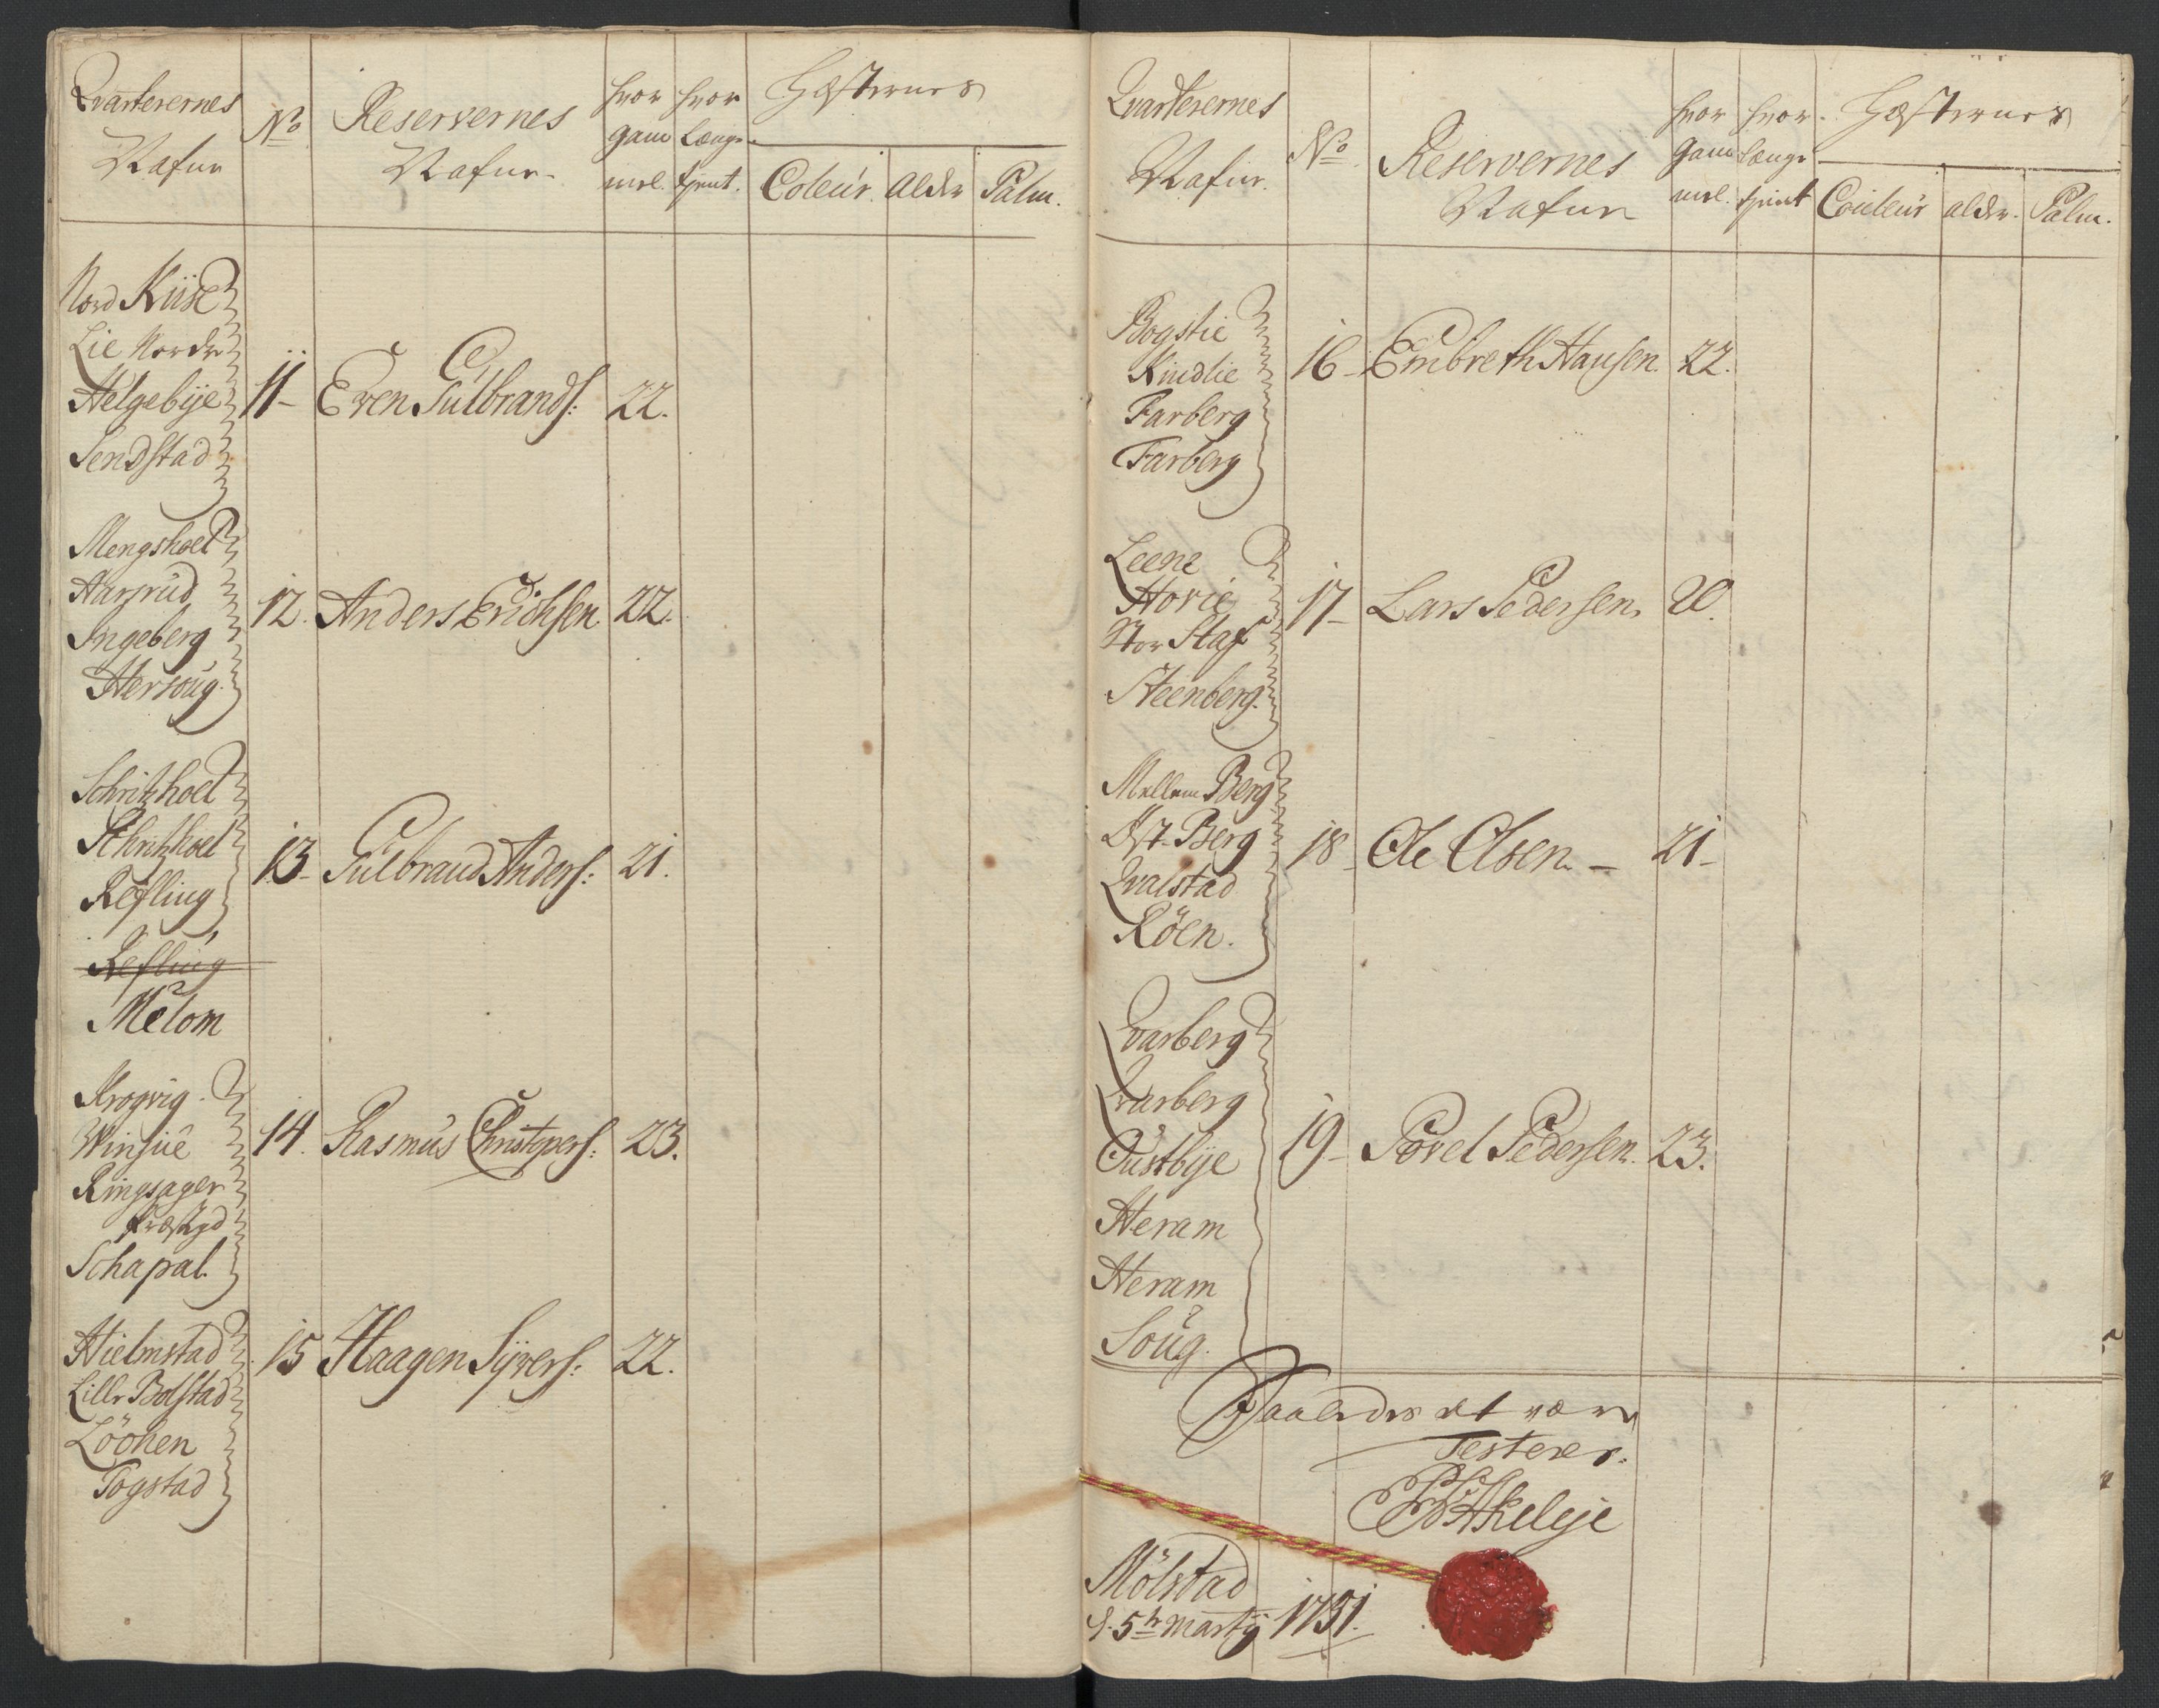 Qvarterernes
Nafne
No
Reservernes
Nafne
hvor
gam
mel.
hvor
længe
tjent.
Hæsternes
Coleur.
alder
Palm.
Nord Kiise
Lie Nordre
Helgebÿe
Sendstad
11 - Even Gulbrands: 22.
Mengshoel
Ingeberg
Hersoug
12. Anders Erichsen. 22.
Schritzhoel
Schritzhoel
Refling
Refling
Melom
13 - Gulbrand Anders: 21.
Krogvig
Winjue
Ringsager
Præstgd
Schapal.
14. Rasmus Christopers: 23.
Hielmstad
Lille Bolstad
Löchen
Togstad
15 Haagen Sÿvers: 22.
Qvarterernes
Nafne.
No
Reservernes
Nafne
hvor
gam
mel.
hvor
længe
tjent
Hæsternes
Couleur
alder.
Palm.
Bogstie
Kindlie
Farberg
Farberg
16 - Embreth Hansen. 22.
Leene
Hovie
Stor Staf
Steenberg.
17 - Lars Pedersen. 20.
Mellem Berg
Øst-Berg
Qvalstad
Röen.
18 - Ole Olsen. - 21 -
Qvarberg
Qvarberg
Oustbÿe
Heram
Heram
Soug.
19 - Povel Pedersen. 23.
Saaledes at være
Testeres.
Akeleje
Mölstad
d. 5te Martÿ 1751.